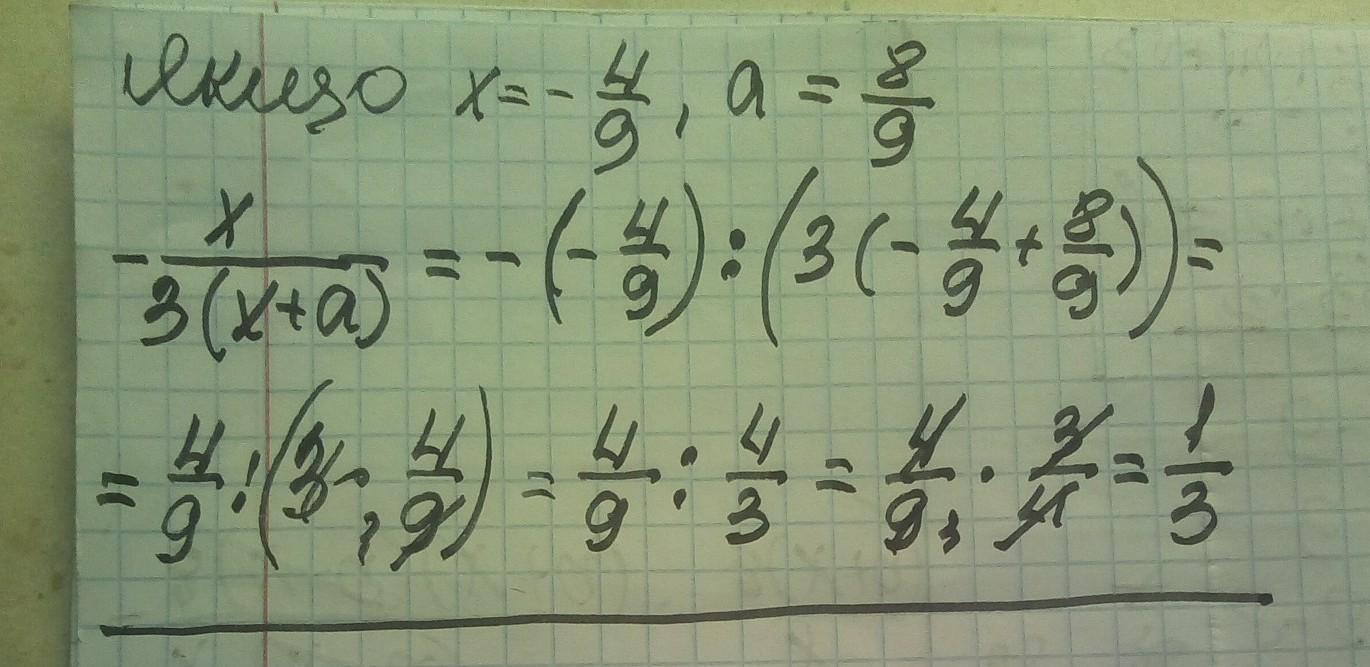 Якщо x = - 4/9, a = 8/9
- x/3(x+a) = - (- 4/9) : (3 (- 4/9 + 8/9)) =
= 4/9 : (3 · 4/9) = 4/9 : 4/3 = 4/9 · 3/4 = 1/3